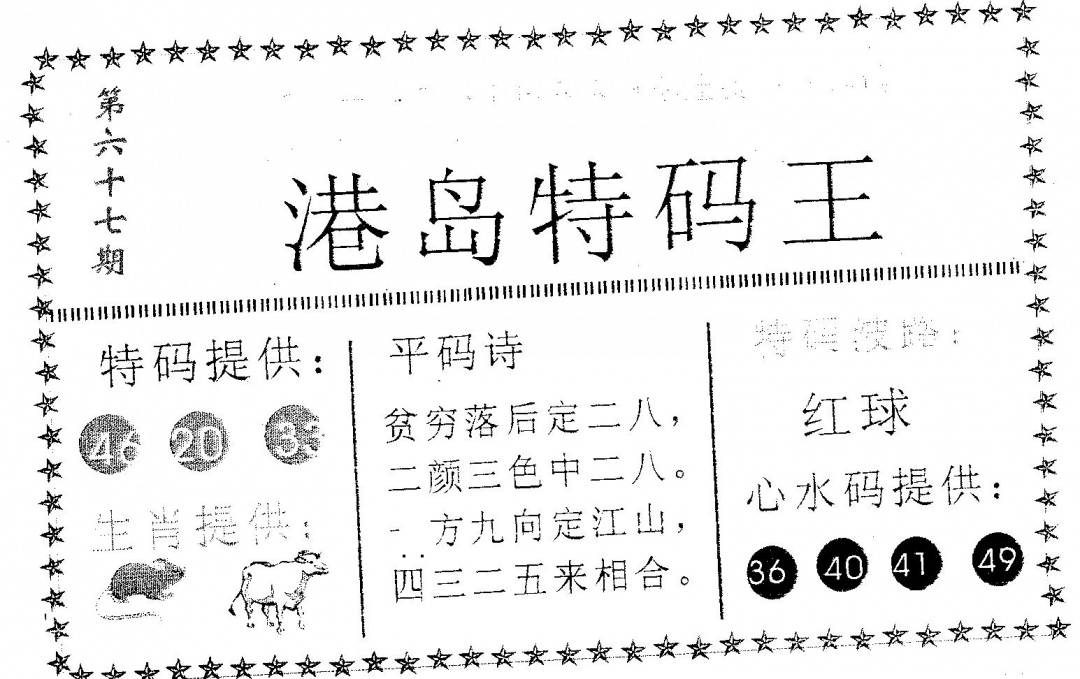 第六十七期
港岛特码王
特码提供：
46 20 33
生肖提供：
平码诗
贫穷落后定二八，
二颜三色中二八。
一方九向定江山，
四三二五来相合。
特码波路：
红球
心水码提供：
36 40 41 49